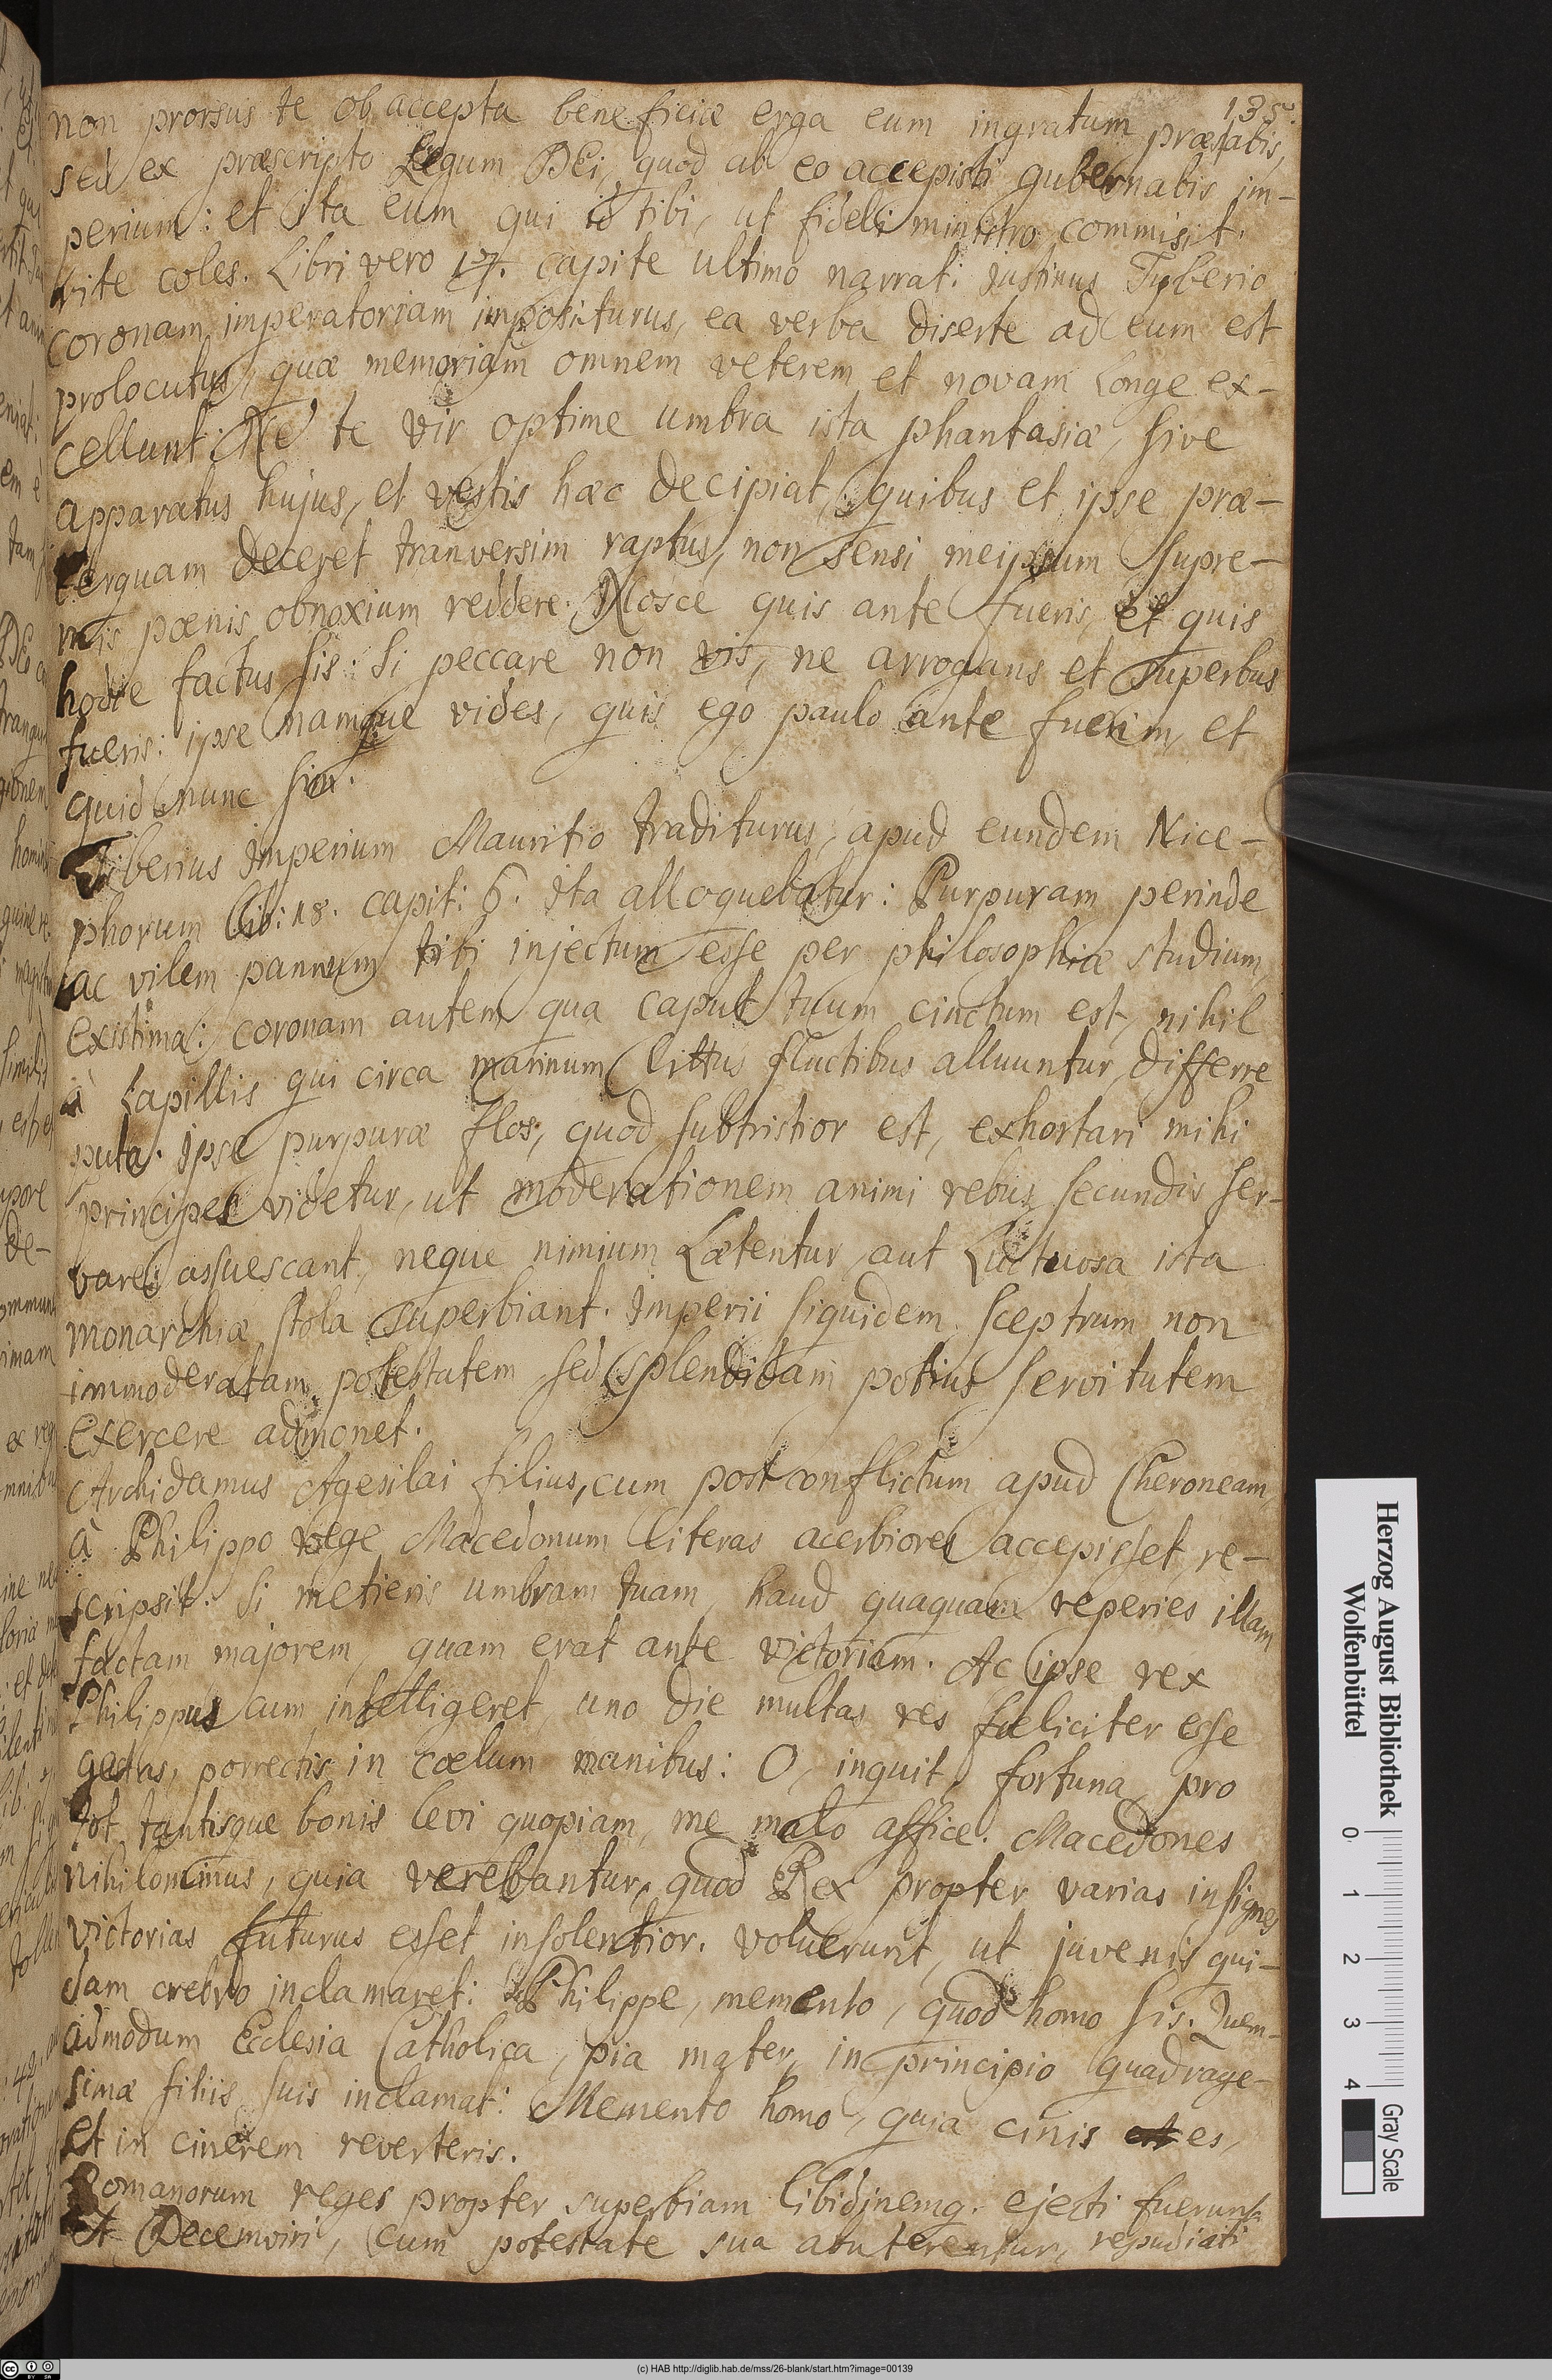 135.
non prorsus te ob accepta beneficia erga eum ingratum præstabis,
sed ex præscripto Legum DEi, quod ab eo accepisti gubernabis im-
perium: et ita eum qui id tibi, ut fideli ministro commisit.
rite coles. Libri vero 17. capite ultimo narrat: Justinus Tyberio
coronam imperatoriam impositurus, ea verba diserte ad eum est
prolocutus, quæ memoriam omnem veterem et novam longe ex-
cellunt: Ne te vir optime umbra ista phantasiæ, sive
apparatus hujus, et vestis hæc decipiat, quibus et ipse præ-
terquam deceret tranversim raptus, non sensi meipsum supre-
mis pœnis obnoxium reddere. Nosce quis ante fueris, et quis
hodie factus sis: si peccare non vis, ne arrogans et superbus
fueris: ipse namque vides, quis ego paulo ante fuerim, et
quid nunc sim.
Tiberius Imperium Mauritio traditurus, apud eundem Nice-
phorum lib: 18. capit: 6. Ita alloquebatur: Purpuram perinde
ac vilem pannum tibi injectum esse per philosophiæ studium,
existima: coronam autem qua caput tuum cinctum est, nihil
à Lapillis qui circa marinum littus fluctibus alluuntur, differre
puta. Ipse purpuræ flos, quod subtristior est, exhortari mihi
principes videtur, ut moderationem animi rebus secundis ser-
vare assuescant, neque nimium Lætentur, aut Luctuosa ista
monarchiæ stola superbiant. Imperii siquidem sceptrum non
immoderatam potestatem sed splendidam potius servitutem
exercere admonet.
Archidamus Agesilai filius, cum post conflictum apud Cheroneam,
à Philippo rege Macedonum literas acerbiores accepisset, re-
scripsit. Si metieris umbram tuam, haud quaquam reperies illam
factam majorem, quam erat ante victoriam. Ac ipse rex
Philippus cum intelligeret, uno die multas res fœliciter esse
gestas, porrectis in cœlum manibus: O, inquit, fortuna, pro
tot tantisque bonis levi quopiam, me malo affice. Macedones
nihilominus, quia verebantur, quod Rex propter varias insignes
victorias futurus esset insolentior. voluerunt, ut juvenis qui-
dam crebro inclamaret: Philippe, memento, quod homo sis. Quem-
admodum Ecclesia Catholica, pia mater, in principio quadrage-
simæ filiis suis inclamat: Memento homo, quia cinis es,
et in cinerem reverteris.
Romanorum reges propter superbiam libidinemq. ejecti fuerunt.
et Decemviri, cum potestate sua abuterentur, repudiati
Herzog August Bibliothek
Wolfenbüttel
0 1 2 3 4
Gray Scale
(c) HAB http://diglib.hab.de/mss/26-blank/start.htm?image=00139